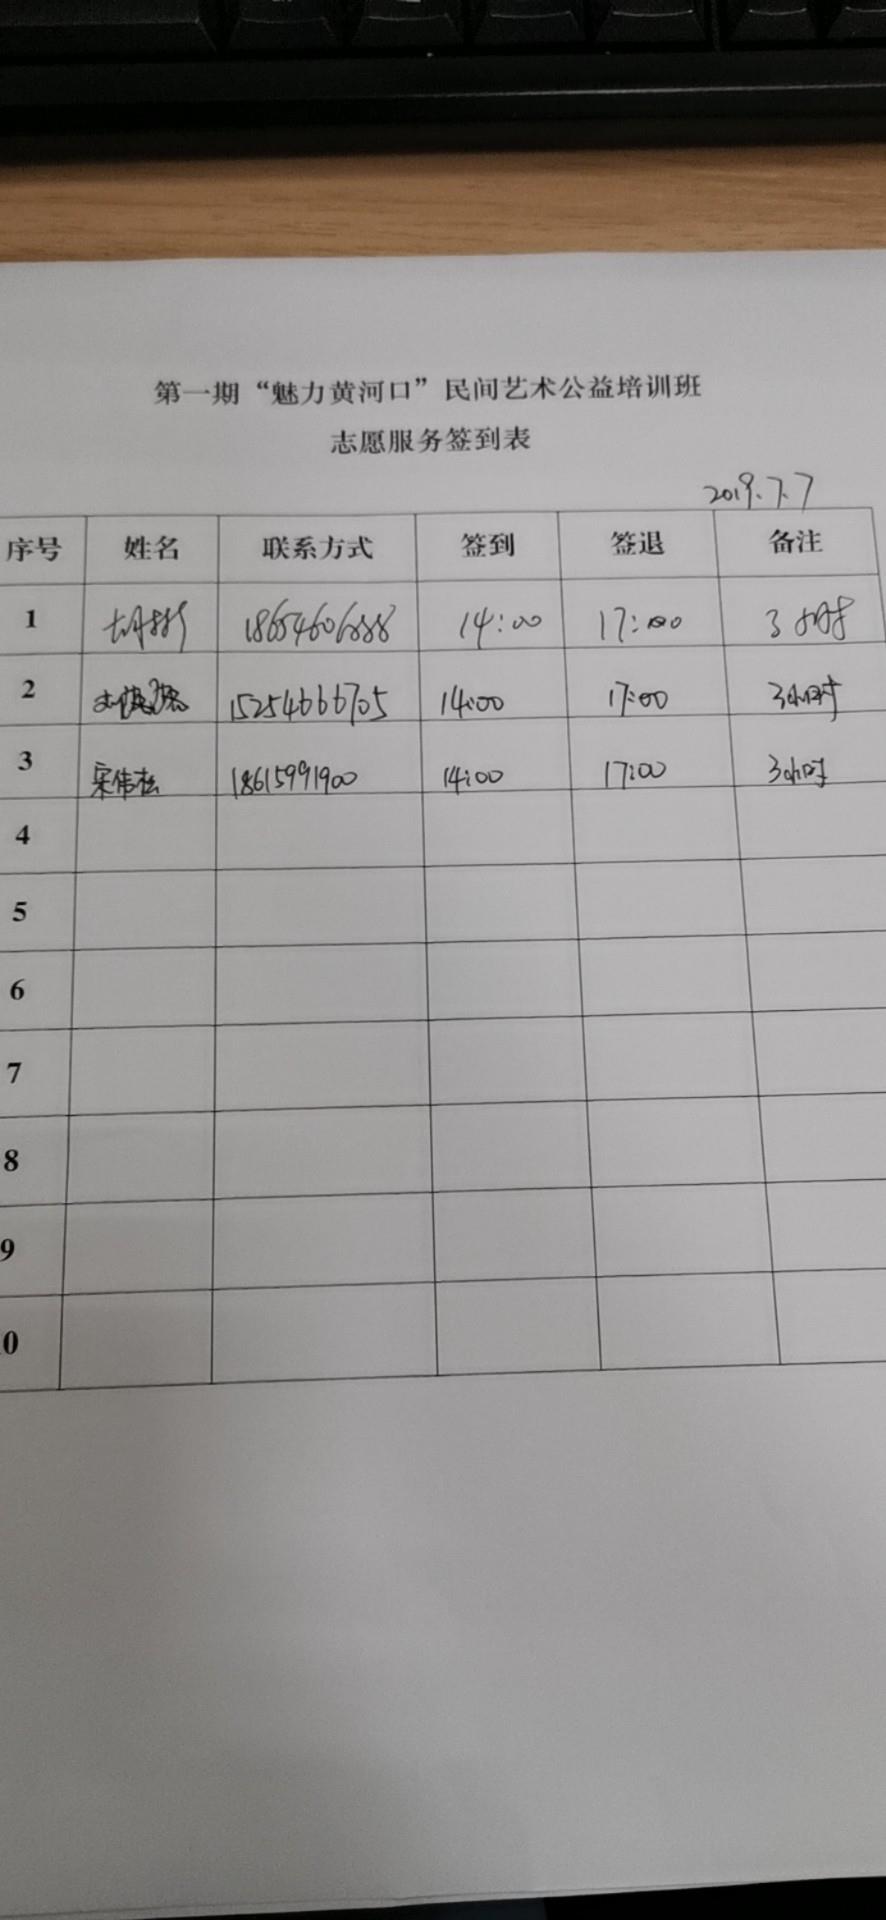 第一期“魅力黄河口”民间艺术公益培训班
志愿服务签到表
2019.7.7
序号 姓名 联系方式 签到 签退 备注
1 14:00 17:00 3小时
2 15254666705 14:00 17:00 3小时
3 宋伟松 18615991900 14:00 17:00 3小时
4
5
6
7
8
9
0